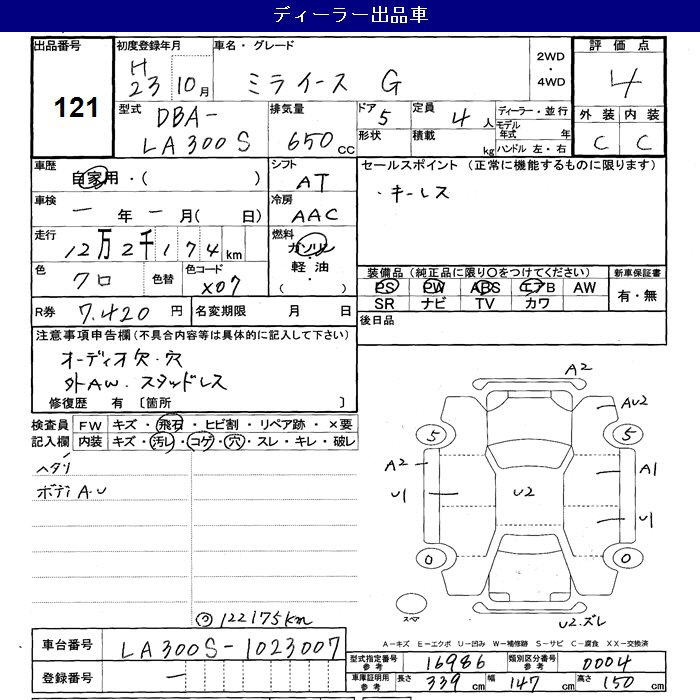 ディーラー出品車
出品番号
121
初度登録年月
H
23 10月
車名・グレード
ミライース G
2WD
・
4WD
評価点
4
外装 内装
C C
型式
DBA-
LA300S
排気量
650cc
ドア
5
定員
4人
形状
積載
kg
ディーラー・並行
モデル
年式 年
ハンドル 左・右
車歴
自家用・( )
シフト
AT
セールスポイント (正常に機能するものに限ります)
・キーレス
車検
一年一月( 日)
冷房
AAC
走行
12万2千174km
燃料
ガソリン
・
軽油
・
( )
色
クロ
色替
色コード
X07
装備品(純正品に限り〇をつけてください)
新車保証書
PS PW ABS エアB AW
SR ナビ TV カワ
有・無
R券
7.420円
名変期限 月 日
後日品
注意事項申告欄(不具合内容等は具体的に記入して下さい)
オーディオ欠・穴
外AW.スタッドレス
修復歴 有〔箇所 〕
検査員
記入欄
FW キズ・飛石・ヒビ割・リペア跡・×要
内装 キズ・汚レ・コゲ・穴・スレ・キレ・破レ
ヘタリ
ボディA.U
122175km
A2
AU2
5
5
A2
A1
U1
U2
U1
0
0
スペア
U2.ズレ
A-キズ E-エクボ U-凹み W-補修跡 S-サビ C-腐食 XX-交換済
車台番号
LA300S-1023007
登録番号
一
型式指定番号
参考
16986
類別区分番号
参考
0004
車庫証明用
参考
長さ 339cm 幅 147cm 高さ 150cm